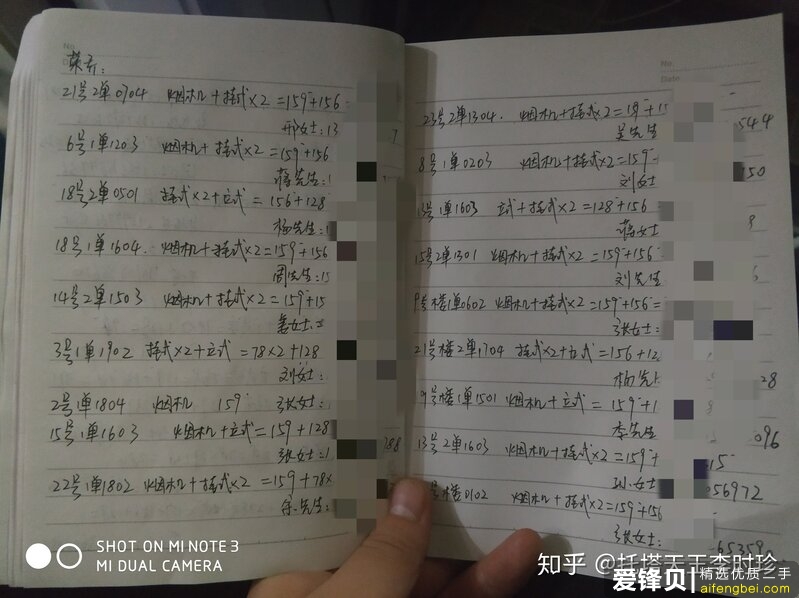 21号2单0704 烟机+挂式×2=159+156
邢女士:13
6号1单1203 烟机+挂式×2=159+156
蒋先生:1
18号2单0501 挂式×2+立式=156+128
杨先生:1
18号1单1604. 烟机+挂式×2=159+156
周先生:15
14号2单1503 烟机+挂式×2=159+15
姜女士:
3号1单1902 挂式×2+立式=78×2+128
刘女士:
2号1单1804 烟机 159
张女士:
15号1单1603 烟机+立式=159+128
张女士:1
22号1单1802 烟机+挂式×2=159+78×
先生:
7
388
No.
Date
23号2单1304. 烟机+挂式×2=159+15
吴先生
544
8号1单0203 烟机+挂式×2=159+
刘女士
150
1603 立式+挂式×2=128+156
蒋女士
15号2单1301 烟机+挂式×2=159+156
刘先生
9号楼1单0602 烟机+挂式×2=159+156=
张女士:
21号楼2单1704 挂式×2+立式=156+12
杨先
28
9号楼1单1501 烟机+立式=159+1
李先生
096
13号2单1603 烟机+挂式×2=159+
孙女士
15
号楼0102 烟机+挂式×2=159+156
056972
张女士:
65359
SHOT ON MI NOTE 3
MI DUAL CAMERA
知乎 @托塔天王李时珍
爱锋贝 精选优质二手
aifengbei.com